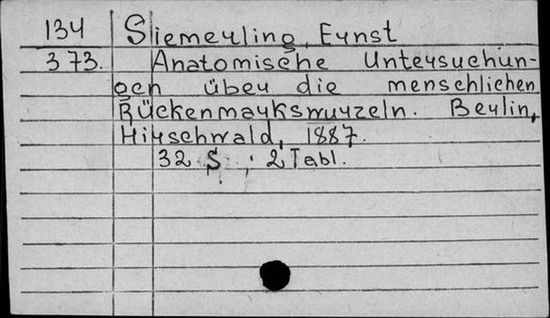 134 Siemerling, Ernst
373. Anatomische Untersuchun-
gen über die menschlichen
Rückenmarkswurzeln. Berlin,
Hirschwald, 1887.
32 S. ; 2 Tabl.